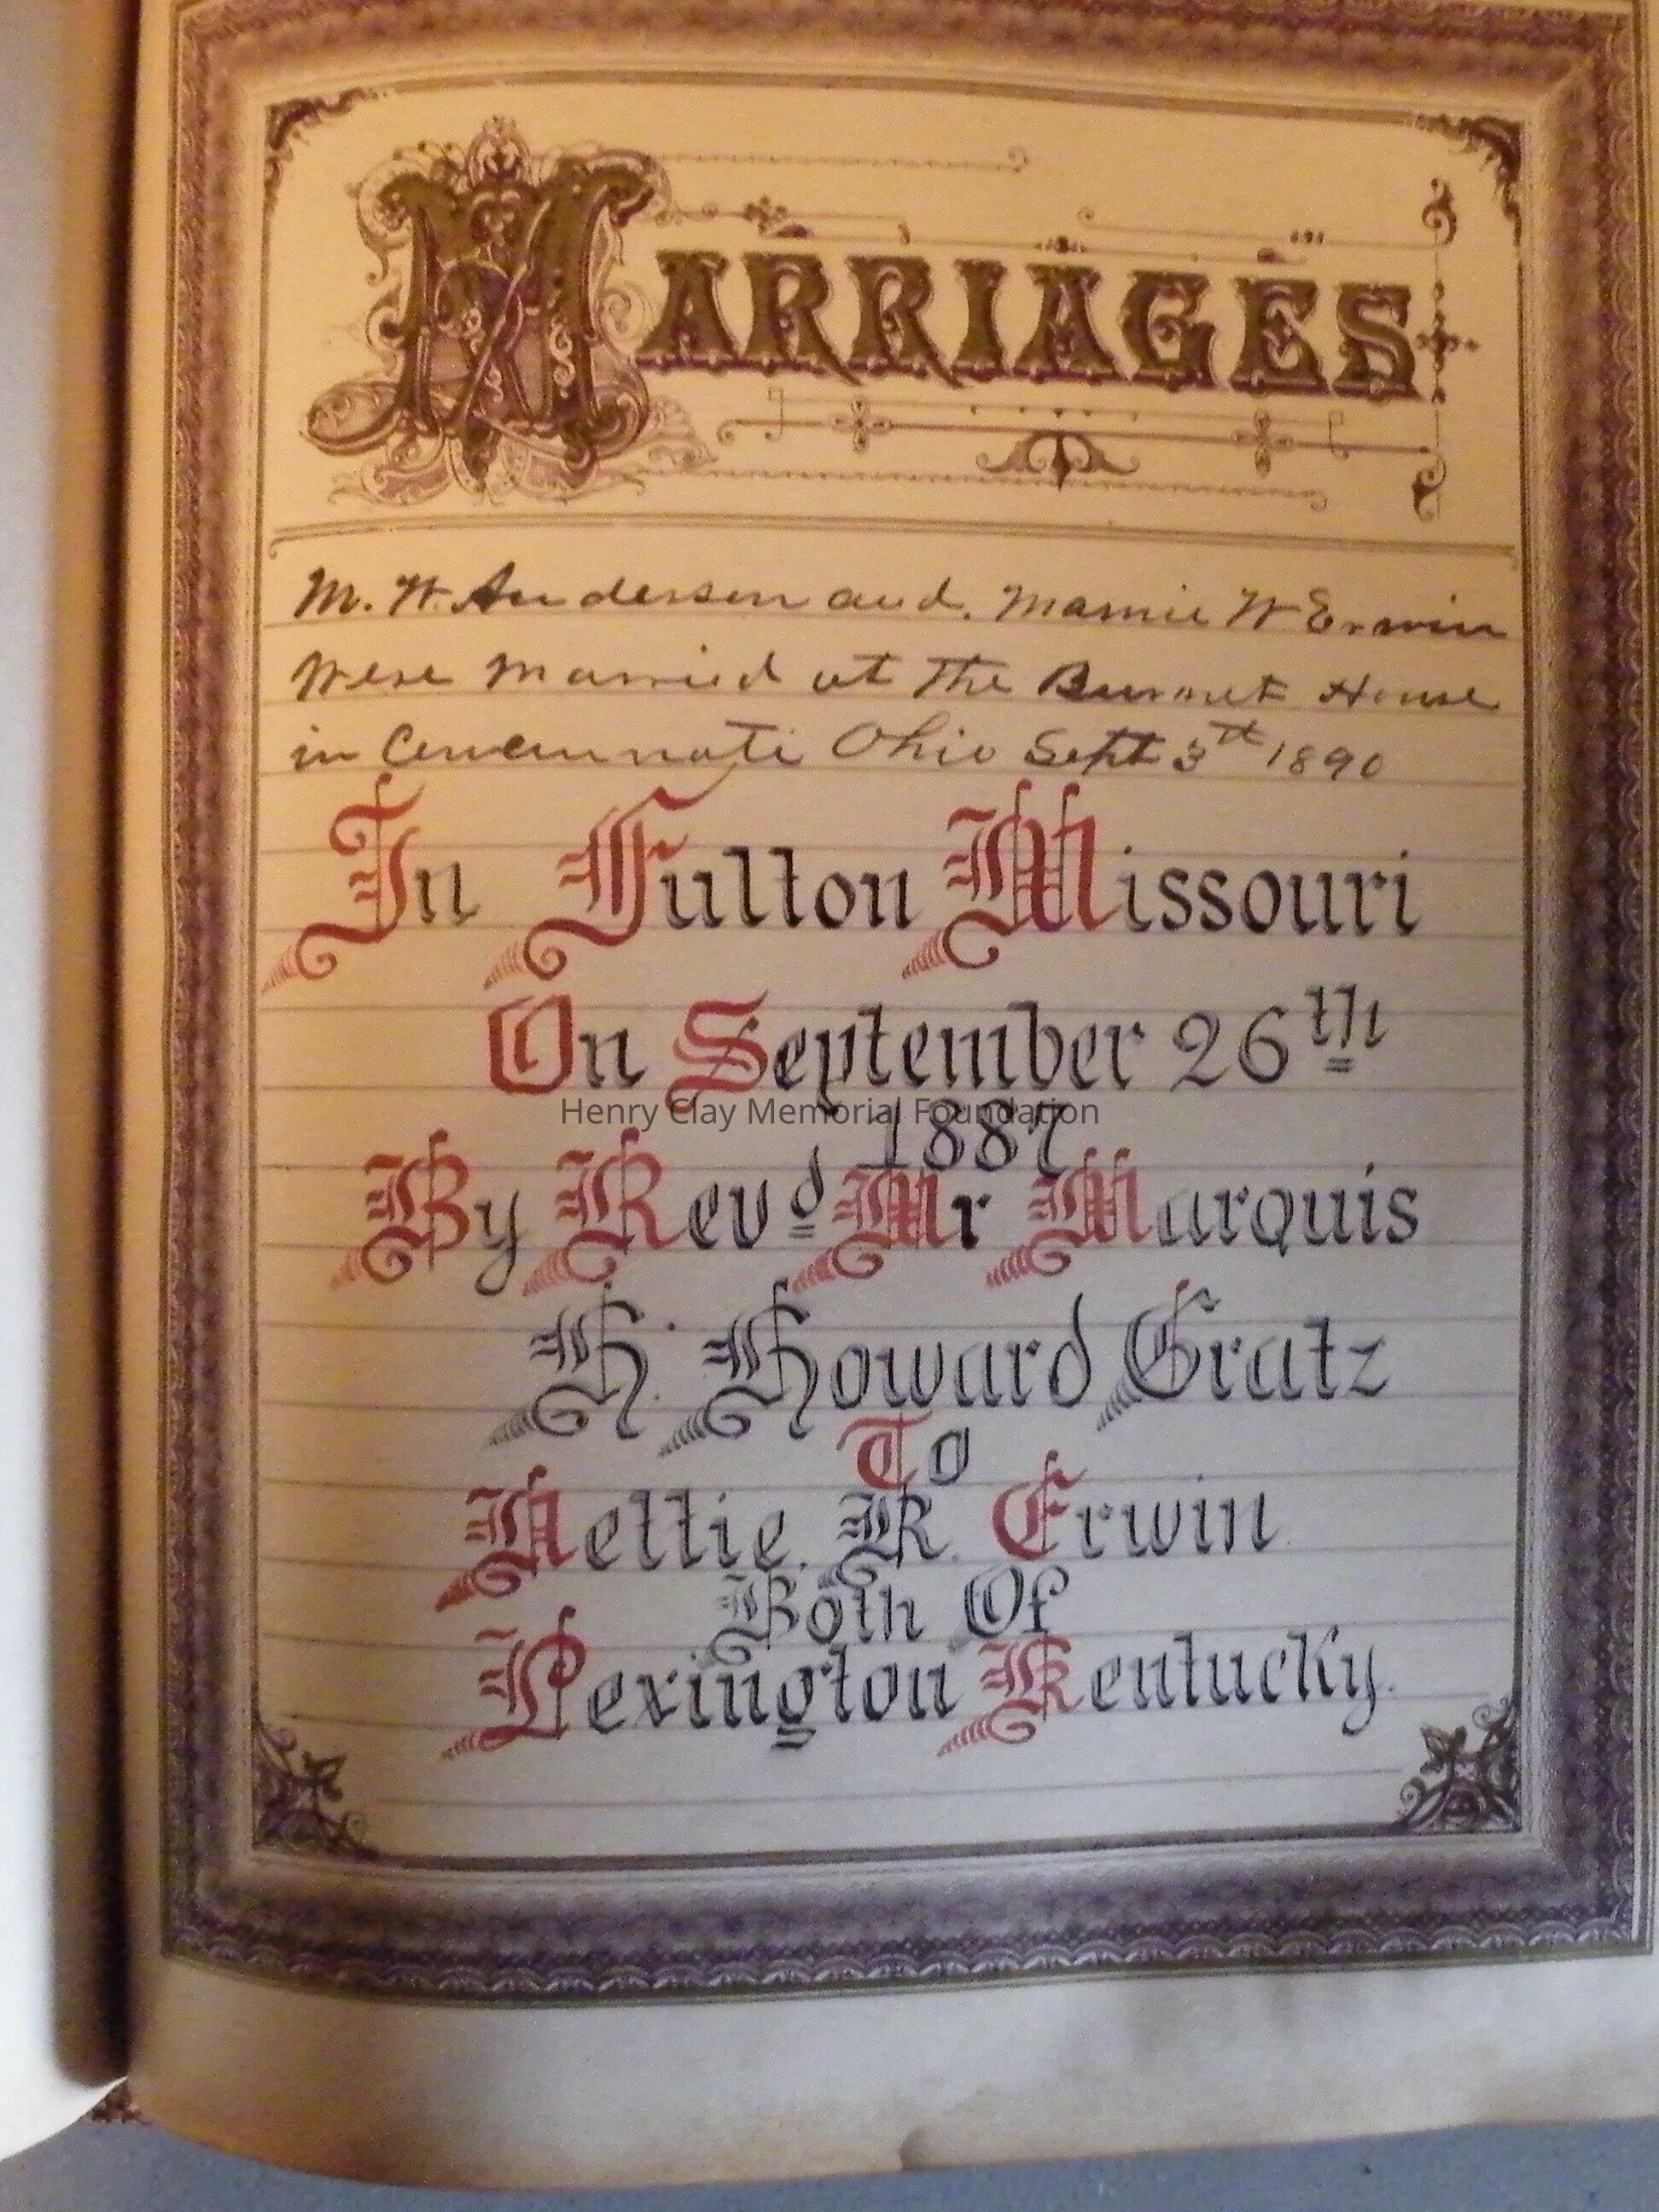 MARRIAGES
M. W. Anderson and. Mamie W Erwin
Were Married at The Burnet House
in Cincinnati Ohio Sept 3rd 1890
In Fulton Missouri
On September 26th
1887
Henry Clay Memorial Foundation
By Revd Mr Marquis
H. Howard Gratz
To
Nettie. R. Erwin
Both Of
Lexington Kentucky.